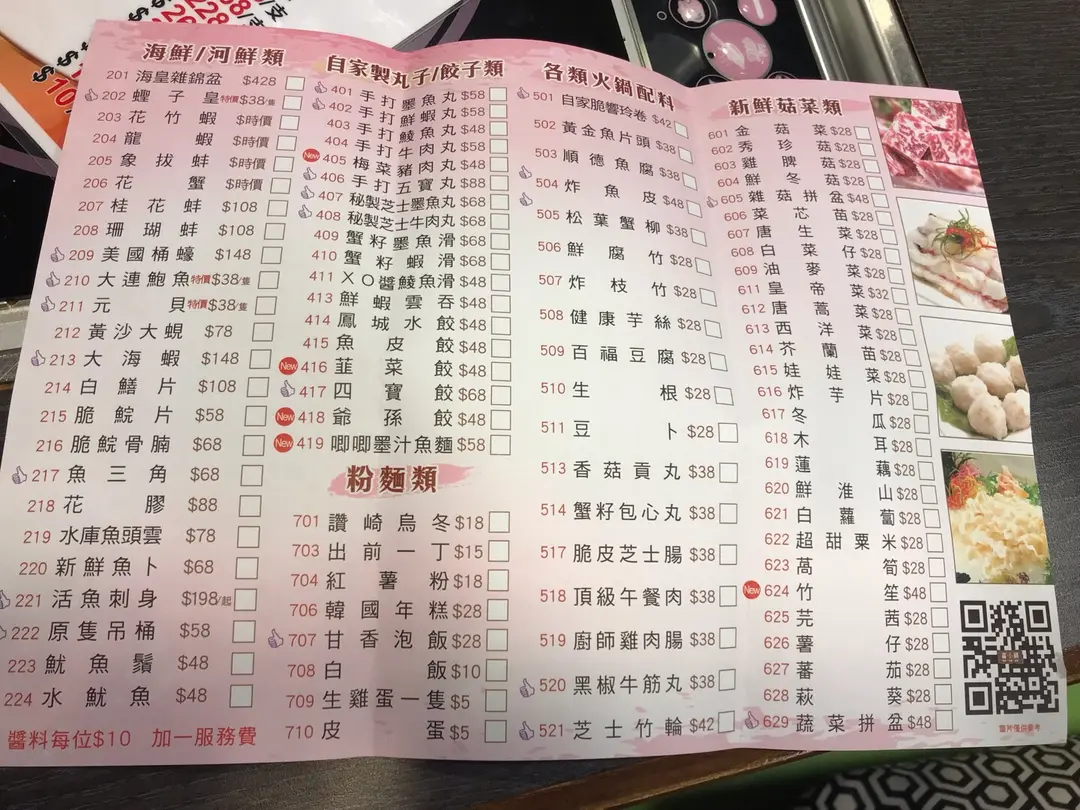 海鮮/河鮮類
201 海皇雜錦盆 $428
202 蟶子皇 特價$38/隻
203 花竹蝦 $時價
204 龍蝦 $時價
205 象拔蚌 $時價
206 花蟹 $時價
207 桂花蚌 $108
208 珊瑚蚌 $108
209 美國桶蠔 $148
210 大連鮑魚 特價$38/隻
211 元貝 特價$38/隻
212 黃沙大蜆 $78
213 大海蝦 $148
214 白鱔片 $108
215 脆鯇片 $58
216 脆鯇骨腩 $68
217 魚三角 $68
218 花膠 $88
219 水庫魚頭雲 $78
220 新鮮魚卜 $68
221 活魚刺身 $198/起
222 原隻吊桶 $58
223 魷魚鬚 $48
224 水魷魚 $48
醬料每位$10 加一服務費
自家製丸子/餃子類
401 手打墨魚丸 $58
402 手打鮮蝦丸 $58
403 手打鯪魚丸 $58
404 手打牛肉丸 $58
New 405 梅菜豬肉丸 $48
406 手打五寶丸 $88
407 秘製芝士墨魚丸 $68
408 秘製芝士牛肉丸 $68
409 蟹籽墨魚滑 $68
410 蟹籽蝦滑 $68
411 XO醬鯪魚滑 $48
413 鮮蝦雲吞 $48
414 鳳城水餃 $48
415 魚皮餃 $48
New 416 韮菜餃 $48
417 四寶餃 $68
New 418 爺孫餃 $48
New 419 唧唧墨汁魚麵 $58
粉麵類
701 讚崎烏冬 $18
703 出前一丁 $15
704 紅薯粉 $18
706 韓國年糕 $28
707 甘香泡飯 $28
708 白飯 $10
709 生雞蛋一隻 $5
710 皮蛋 $5
各類火鍋配料
501 自家脆響玲卷 $42
502 黃金魚片頭 $38
503 順德魚腐 $38
504 炸魚皮 $48
505 松葉蟹柳 $38
506 鮮腐竹 $28
507 炸枝竹 $28
508 健康芋絲 $28
509 百福豆腐 $28
510 生根 $28
511 豆卜 $28
513 香菇貢丸 $38
514 蟹籽包心丸 $38
517 脆皮芝士腸 $38
518 頂級午餐肉 $38
519 廚師雞肉腸 $38
520 黑椒牛筋丸 $38
521 芝士竹輪 $42
新鮮菇菜類
601 金菇菜 $28
602 秀珍菇 $28
603 雞脾菇 $28
604 鮮冬菇 $28
605 雜菇拼盆 $48
606 菜芯苗 $28
607 唐生菜 $28
608 白菜仔 $28
609 油麥菜 $28
611 皇帝菜 $32
612 唐蒿菜 $28
613 西洋菜 $28
614 芥蘭苗 $28
615 娃娃菜 $28
616 炸芋片 $28
617 冬瓜 $28
618 木耳 $28
619 蓮藕 $28
620 鮮淮山 $28
621 白蘿蔔 $28
622 超甜粟米 $28
623 萵筍 $28
New 624 竹笙 $48
625 芫茜 $28
626 薯仔 $28
627 蕃茄 $28
628 萩葵 $28
629 蔬菜拼盆 $48
圖片僅供參考